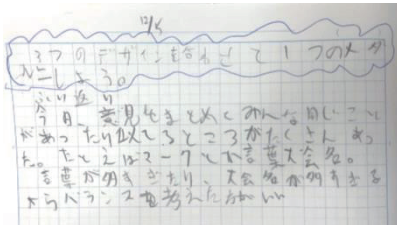 12/15
3つのデザインを合わせて1つの大きい
にしよう。
ふり返り
今日、意見をまとめてみんな同じこと
があったり似てるところがたくさんあっ
た。たとえばマークとか言葉大会名。
言葉が多すぎたり、大会名が多すぎる
からバランスを考えた方がいい